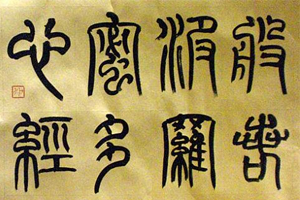 般若
波羅
蜜多
心經